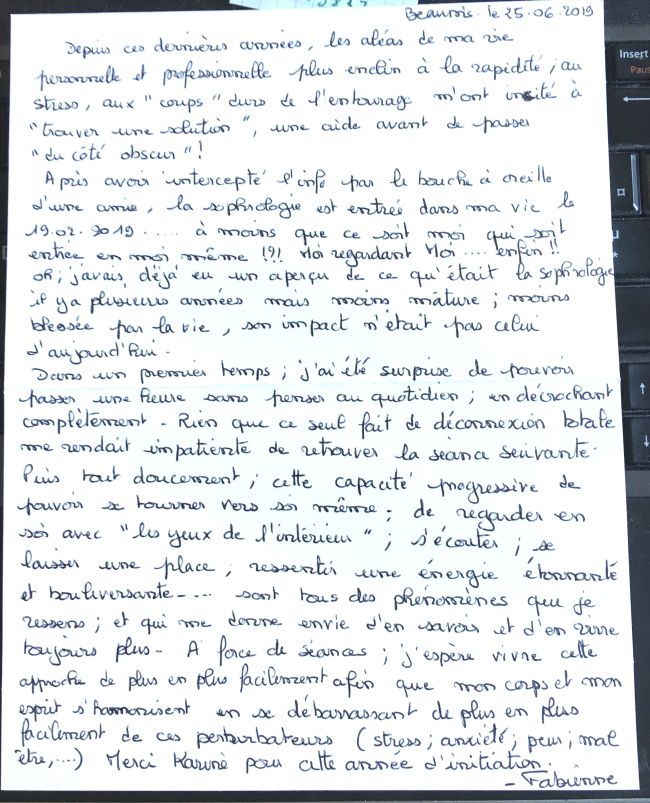 Beauvois. le 25.06.2019
Depuis ces dernières années, les aléas de ma vie
personnelle et professionnelle plus enclin à la rapidité ; au
stress, aux "coups" durs de l'entourage m'ont incité à
"trouver une solution", une aide avant de passer
"du côté obscur" !
Après avoir intercepté l'info par le bouche à oreille
d'une amie, la sophrologie est entrée dans ma vie le
19.02.2019 ..... à moins que ce soit moi qui soit
entrée en moi même !?! Moi regardant Moi .... enfin !!
oh, j'avais déjà eu un aperçu de ce qu'était la sophrologie
il y a plusieurs années mais moins mâture ; moins
blessée par la vie, son impact n'était pas celui
d'aujourd'hui.
Dans un premier temps ; j'ai été surprise de pouvoir
passer une heure sans penser au quotidien ; en décrochant
complètement. Rien que ce seul fait de déconnexion totale
me rendait impatiente de retrouver la séance suivante.
Puis tout doucement ; cette capacité progressive de
pouvoir se tourner vers soi même ; de regarder en
soi avec "les yeux de l'intérieur" ; s'écouter ; se
laisser une place ; ressentir une énergie étonnante
et bouliversante .... sont tous des phénomènes que je
ressens ; et qui me donne envie d'en savoir et d'en vivre
toujours plus. A force de séances ; j'espère vivre cette
approche de plus en plus facilement afin que mon corps et mon
esprit s'harmonisent en se débarrassant de plus en plus
facilement de ces perturbateurs (stress ; anxiété ; peur ; mal
être, ...) Merci Karine pour cette année d'initiation.
- Fabienne
Insert
Paus